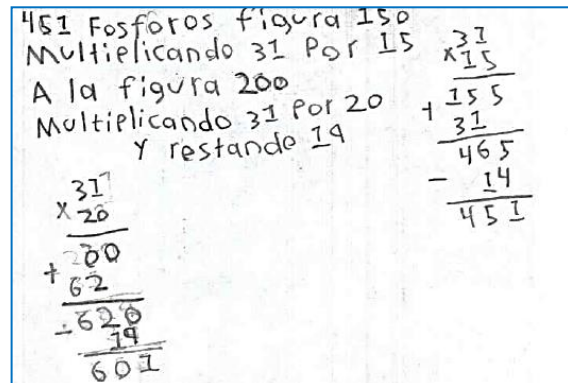 451 Fosforos figura 150
Multiplicando 31 Por 15
A la figura 200
Multiplicando 31 Por 20
Y restando 19
31
x 15
155
+ 31
465
- 14
451
31
x 20
+ 62
- 620
19
601